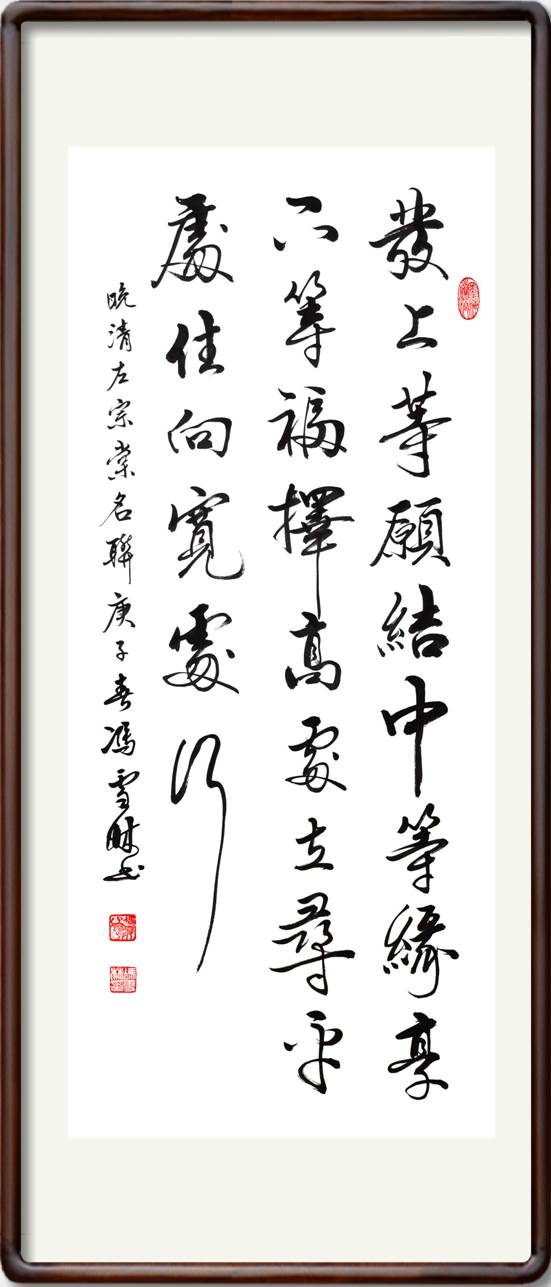 發上等願結中等緣享
下等福擇高處立尋平
處住向寬處行
晚清左宗棠名聯庚子春馮雪林书